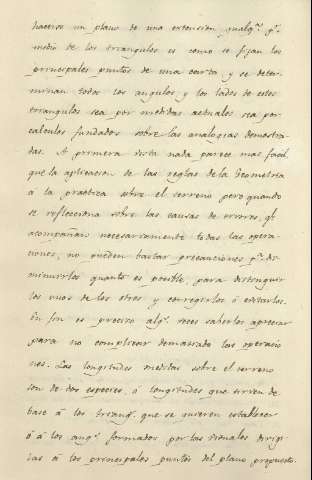 hacerse un plano de una extension qualq.ª p.r
medio de los triangulos es como se fijan los
principales puntos de una carta y se deter-
minan todos los angulos y los lados de estos
triangulos sea por medidas actuales sea por
calculos fundados sobre las analogias demostra-
das. A primera vista nada parece mas facil
que la aplicacion de las reglas de la Geometria
a la practica sobre el terreno pero quando
se reflecciona sobre las causas de errores, q.e
acompañan necesariamente todas las opera-
ciones, no pueden bastar precauciones p.ª dis-
minuirlos quanto es posible, para distinguir
los unos de los otros y corregirlos ó evitarlos.
En fin es preciso alg.s veces saberlos apreciar
para no complicar demasiado las operacio-
nes. Las longitudes medidas sobre el terreno
son de dos especies, ó longitudes que sirven de
base á los triang.s que se quieren establecer
ó á los ang.s formados por las visuales dirigi-
das á los principales puntos del plano propuesto.